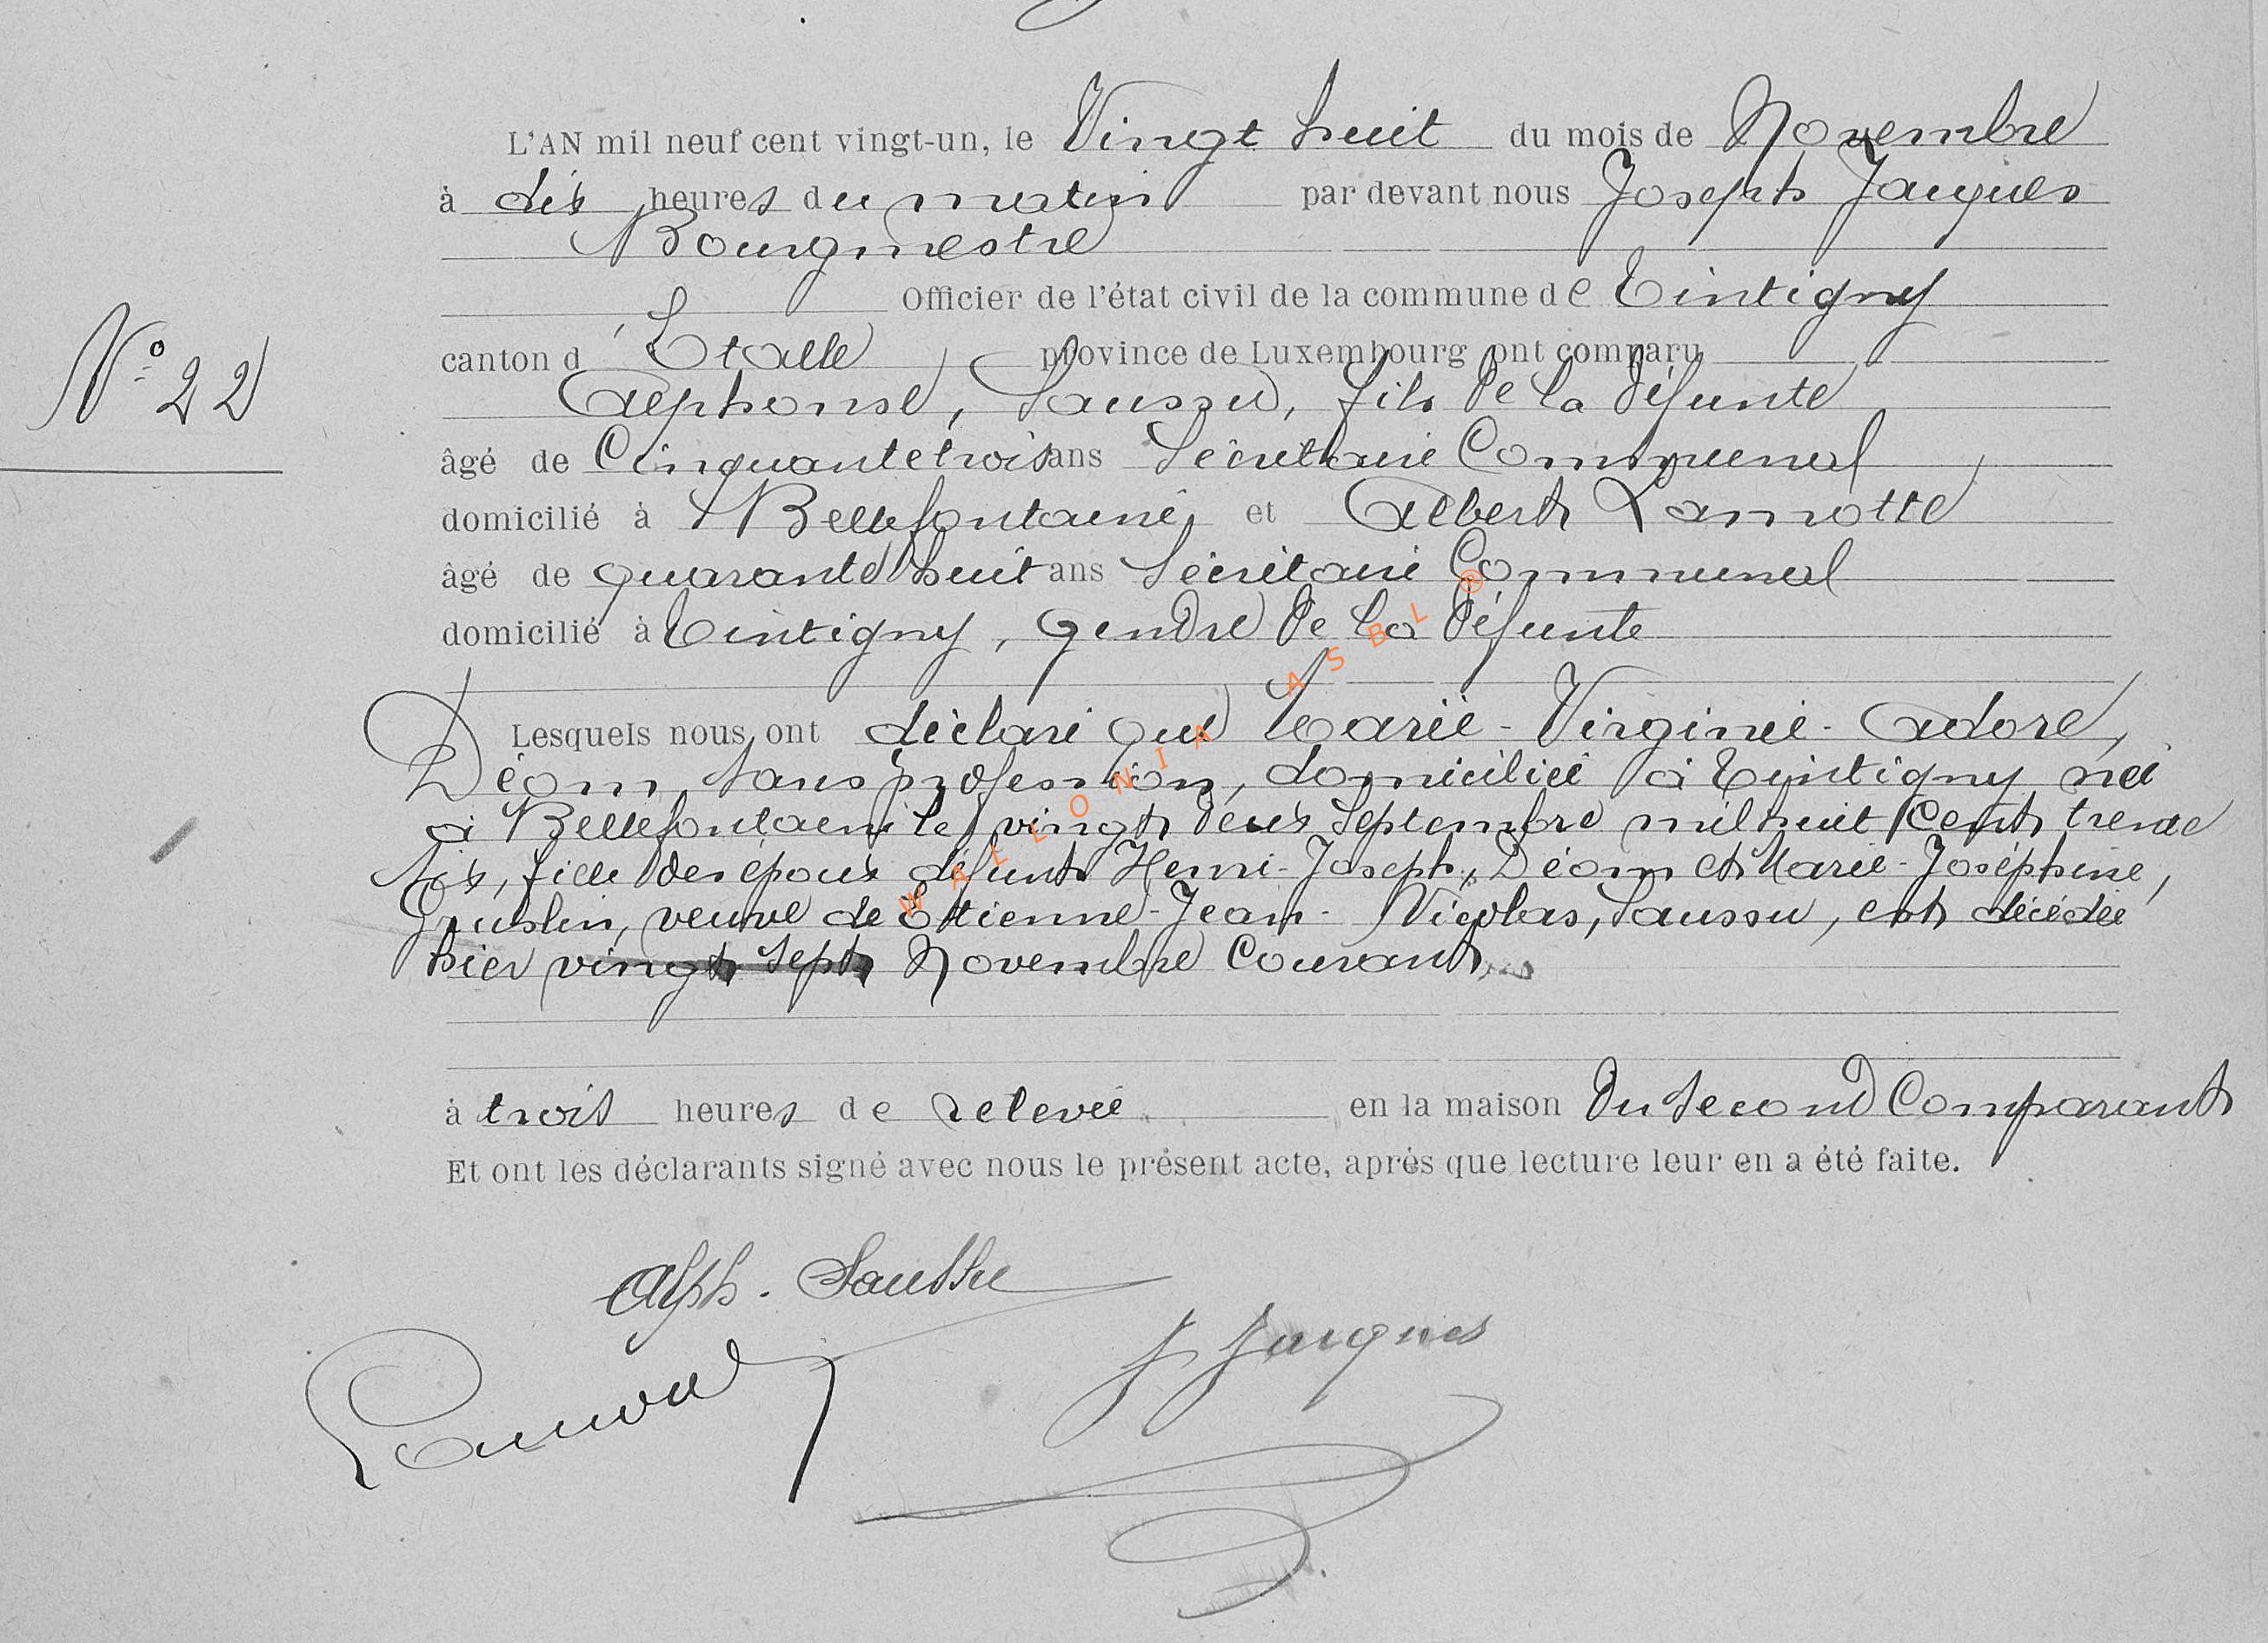 L'AN mil neuf cent vingt-un, le Vingt huit du mois de Novembre
à dix heures du matin par devant nous Joseph Jacques
Bourgmestre
Officier de l'état civil de la commune de Tintigny
N° 22
canton d'Etalle province de Luxembourg ont comparu
Alphonse, Saussu, fils de la défunte
âgé de Cinquante trois ans Secrétaire Communal
domicilié à Bellefontaine, et Albert Lamotte
âgé de quarante huit ans Secrétaire Communal
domicilié à Tintigny, gendre de la défunte
Lesquels nous ont déclaré que Marie-Virginie-Adore,
Déom, sans profession, domiciliée à Tintigny née
à Bellefontaine le vingt deux Septembre mil huit Cent trente
six, fille des époux défunts Henri-Joseph, Déom et Marie-Joséphine,
veuve de Etienne-Jean-Nicolas, Saussu, est décédée
hier vingt sept Novembre Courant
à trois heures de relevée en la maison du second Comparant
Et ont les déclarants signé avec nous le présent acte, après que lecture leur en a été faite.
Alph. Saussu
J Jacques
Lamotte
WALLONIA ASBL ®